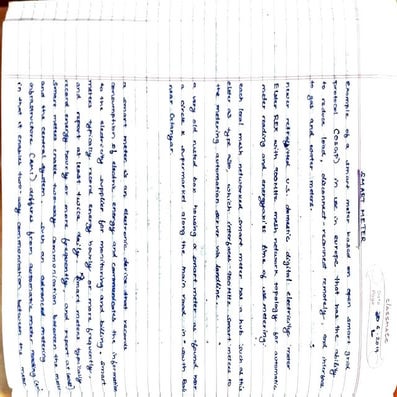 classmate
Date 20.6.2019
Page 1
SMART METER
example of a smart meter based on open smart grid
protocol (OSGP) in use in europe that has the ability
to reduce load, disconnect-reconnect remotely, and interface
to gas and water meters.
newer retrofitted u.s. domestic digital electricity meter
Elster REX with 900MHz mesh network topology for automatic
meter reading and "energyaxis" time of use metering.
each local mesh networked smart meter has a hub such as this
elster A3 type A30, which interfaces 900MHz smart meters to
the metering automation server via landline.
a very old rusted box housing a smart meter as found near
a circle K supermarket along the main road in south Bali
near Calanyar
a smart meter is an electronic device that records
consumption of electric energy and communicates the information
to the electricity supplier for monitoring and billing. Smart
meters typically record energy hourly or more frequently,
and report at least twice daily. Smart meters typically
record energy hourly or more frequently, and report at least
smart meter enable two-way communication between the meter
and the central system. Such an advanced metering
infrastructure (AMI) differs from automatic meter reading (AMR)
in that it enables two-way communication between the meter